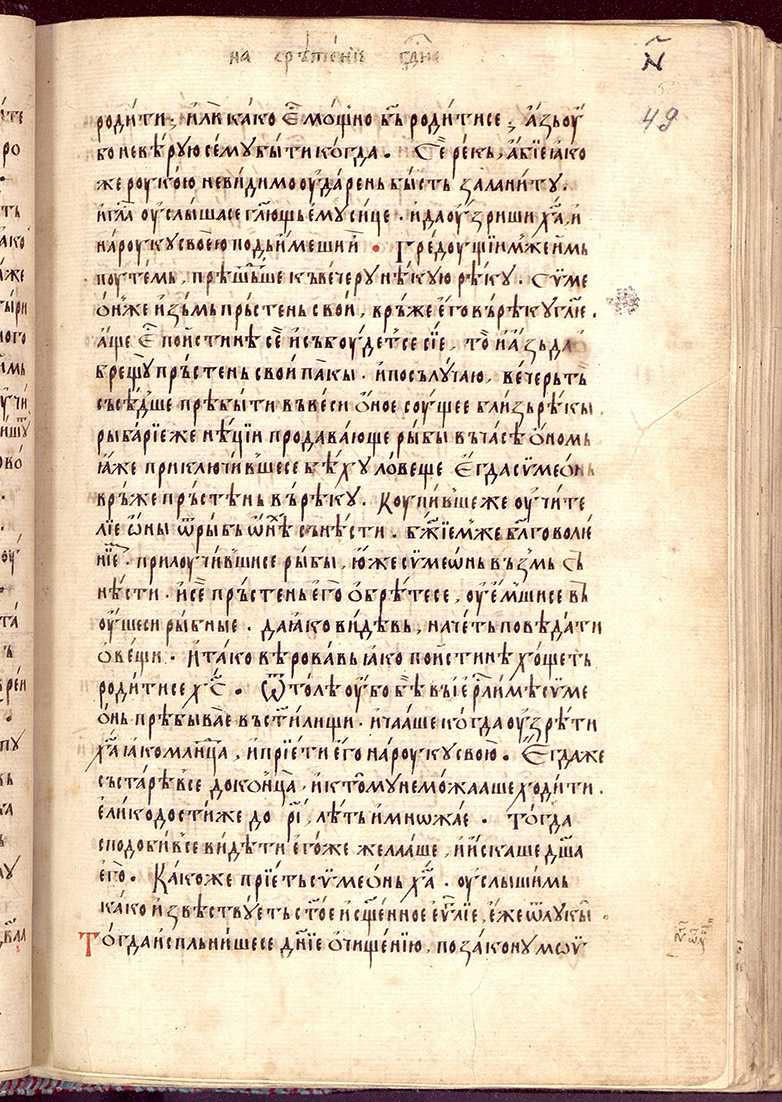 на срѣтенїе гⷭ҇дне
н҃
49
роди́ти ; и҆лѝ ка́ко є҆̀ мо́щно бы̀ роди́тисе ; а҆́зь оу҆́
бо невѣ́рую сем́у бы́ти ко́гда . Сѐ ре́кь , а҆́бїе ꙗ҆́ко
же роуко́ю невидимо оу҆да́рень бы́сть за лани́ту .
и҆ гла̀ оу҆слы́шасе гл҃ющь е҆му си́це . и҆да оу҆́зриши х҃а̀ . и҆
на́роуку свое́ю подь́имеши и҆̀ . Гредоу́щїимже и҆̀мь
поуте́мь , прѣ́шьше къ ве́черу нѣ́кую рѣ́ку . Сѷме
ѡ҆́нже и҆зь́мь пръ́стень свои́ , връ́же е҆го̀ в рѣ́ку гл҃ѥ .
а҆́ще є҆̀ пои́стинѣ сѐ и҆ събоу́детсе сїе , то̀ и҆ а҆́зь да
ѡ҆брещу пръ́стень свои́ па́кы . и҆ по сълу́чаю , ве́черь тѣ
съсѣ́дше прѣбы́ти въ ве́си ѻ҆́ное соу́щее бли́зь рѣкы̀
рыба́рїе же нѣ́цїи продава́юще ры́бы въ ча́сѣ ѻ҆́номь
ꙗ҆́же приключи́вшесе бѣ́ху ло́веще Єгда сѷмеѡ́нь
връ́же пръ́стѣнь в рѣ́ку . Коупи́вше же оу҆чи́те
лїе ѡ҆́ны ѿ ры́бъ ѡ҆́нѣ съне́сти . бж҃їемже бл҃говолѥ́
нїе́ . прилоучи́вшисе ры́бы , ю҆́же сѷмеѡ́нь въ́змь съ
нѣ́сти . и҆ сѐ пръ́стень его̀ ѡ҆брѣ́тесе , оу҆е́мшисе въ
оу҆́шеси ры́бные . да ꙗ҆́ко ви́дѣвь , на́четь повѣ́дати
ѡ҆ ве́щи . И҆ та́ко вѣ́рова́вь ꙗ҆́ко пои́стинѣ хо́щеть
роди́тисе хⷭ҇ . Ѿтолѣ оу҆́бо бѣ̀ въ і҆ерⷭ҇лимѣ сѷме
ѡ҆́нь прѣбы́вае въ ст҃и́лищи . и҆ ча́аше ко́гда оу҆́зрѣти
х҃а̀ ꙗ҆́ко мла́нⷣца , и҆ прїе́ти его̀ на́роуку свою̀ . Єгда же
съста́рѣвсе до коньца̀ , и҆ к то́му не мо́жааше ходи́ти .
е҆ли́ко дости́же до рⷪ҇і , лѣ́ть и҆ мнѡжа́е . То́гда
сподоби́все ви́дѣти е҆го́же жела́аше , и҆ и҆́скаше дш҃а
его̀ . Ка́ко же прїе́ть сѷмеѡ́нь х҃а̀ . оу҆слы́шимь
ка́ко и҆звѣ́ствуеть ст҃ое и҆ сщ҃е́нное е҆ѵⷢ҇лїе , е҆́же ѿ лукы̀ .
То́гда и҆спльни́шесе дн҃їе ѻ҆чищенїю , по зако́ну мѡѷ